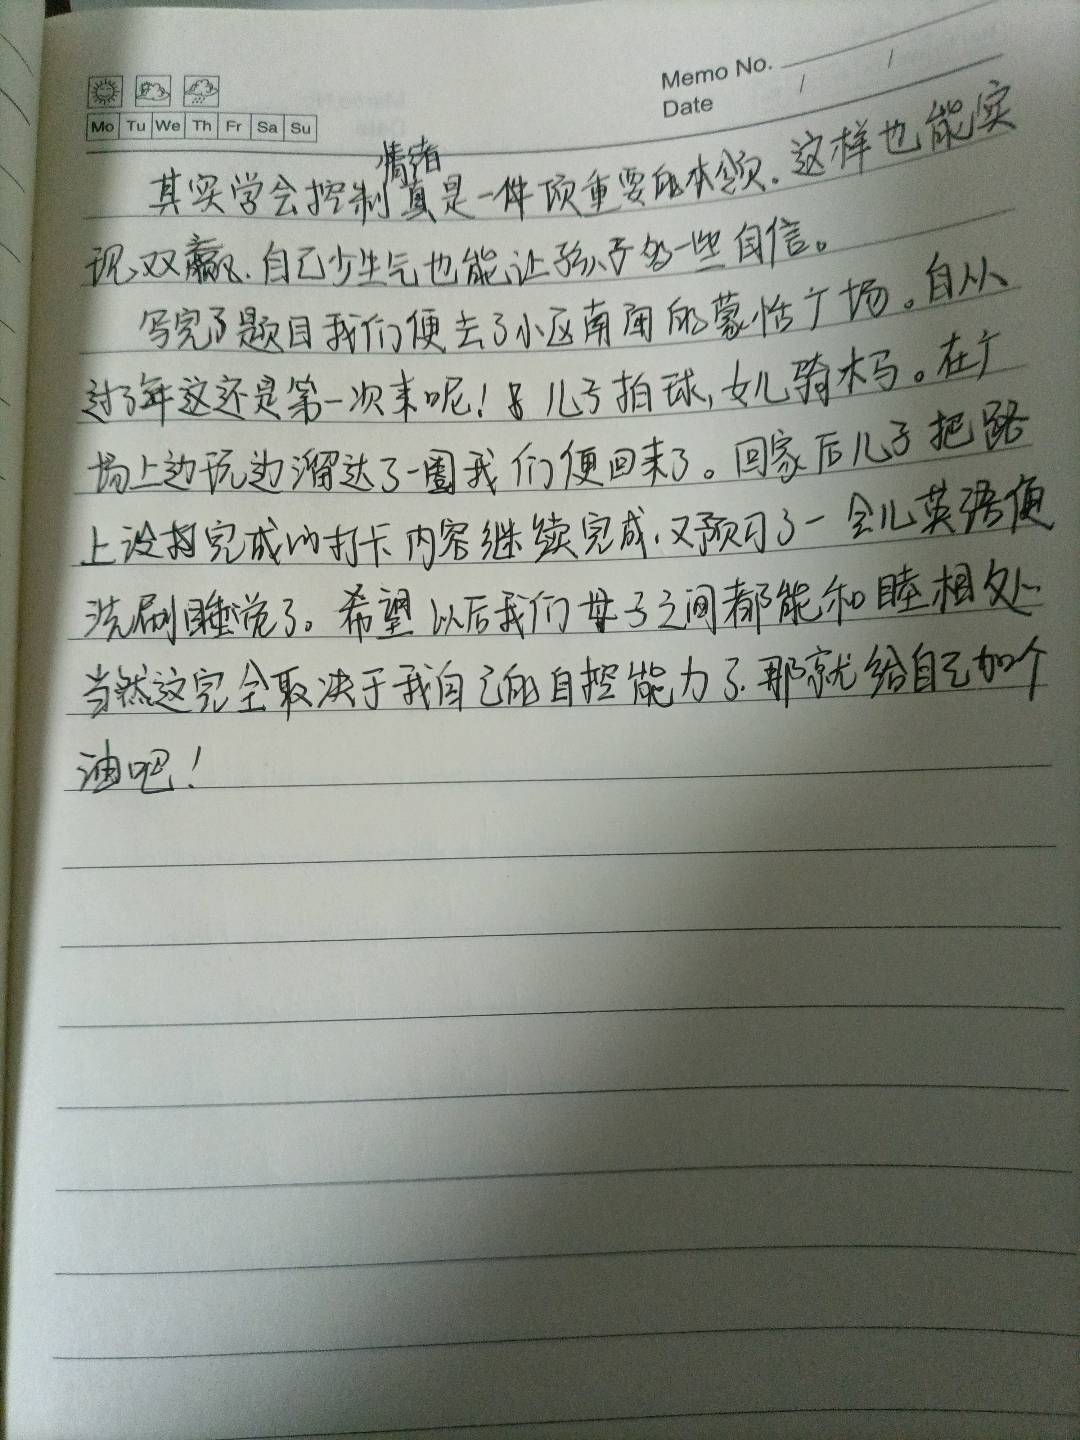 Memo No.
Date / /
Mo Tu We Th Fr Sa Su
其实学会控制情绪真是一件顶重要的本领。这样也能实
现双赢、自己少生气也能让孩子多一些自信。
写完了题目我们便去了小区南面的蒙恬广场。自从
过了年这还是第一次来呢！儿子拍球，女儿骑木马。在广
场上边玩边溜达了一圈我们便回来了。回家后儿子把路
上没完成的打卡内容继续完成，又预习了一会儿英语便
洗刷睡觉了。希望以后我们母子之间都能和睦相处
当然这完全取决于我自己的自控能力了.那就给自己加个
油吧！